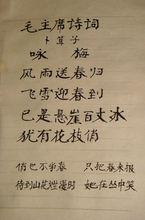 毛主席诗词
卜算子
咏 梅
风雨送春归
飞雪迎春到
已是悬崖百丈冰
犹有花枝俏
俏也不争春 只把春来报
待到山花烂漫时 她在丛中笑